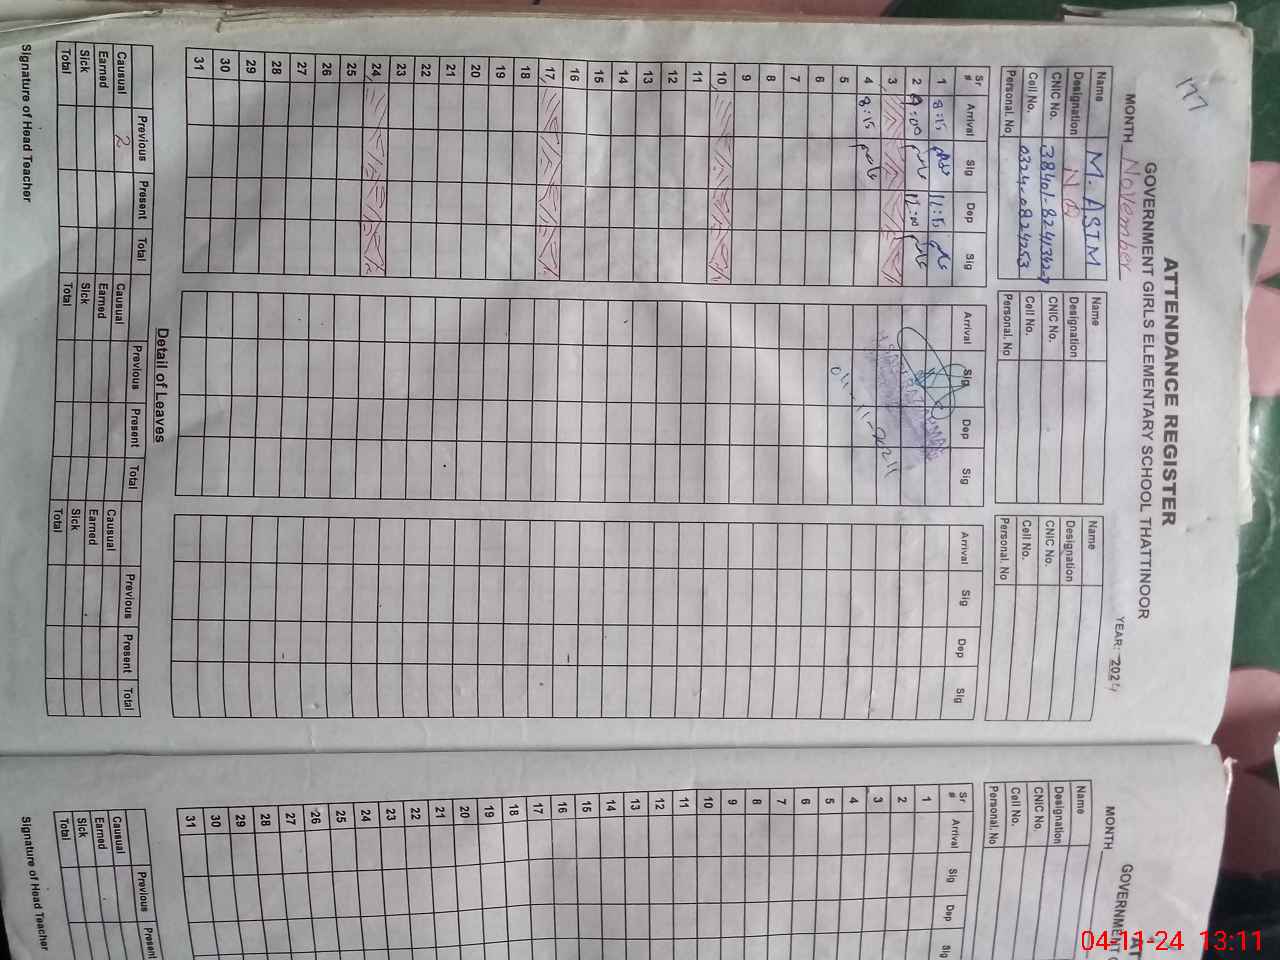 177
ATTENDANCE REGISTER
GOVERNMENT GIRLS ELEMENTARY SCHOOL THATTINOOR
MONTH November YEAR: 2024
Name M. ASIM
Designation N Q
CNIC No.
Cell No.
Personal. No
Name
Designation
CNIC No.
Cell No.
Personal. No
Name
Designation
CNIC No.
Cell No.
Personal. No
Sr # Arrival Sig Dep Sig Arrival Sig Dep Sig Arrival Sig Dep Sig
1 8:15 11:15
2 9:00 12:00
3
4 8:15
5
6
7
8
9
10
11
12
13
14
15
16
17
18
19
20
21
22
23
24
25
26
27
28
29
30
31
04-11-2024
Detail of Leaves
Previous Present Total Previous Present Total Previous Present Total
Causual 2 Causual Causual
Earned Earned Earned
Sick Sick Sick
Total Total Total
Signature of Head Teacher
MONTH
Name
Designation
CNIC No.
Cell No.
Personal. No
Sr # Arrival Sig Dep Sig
1
2
3
4
5
6
7
8
9
10
11
12
13
14
15
16
17
18
19
20
21
22
23
24
25
26
27
28
29
30
31
Previous Present
Causual
Earned
Sick
Total
Signature of Head Teacher
04-11-24 13:11